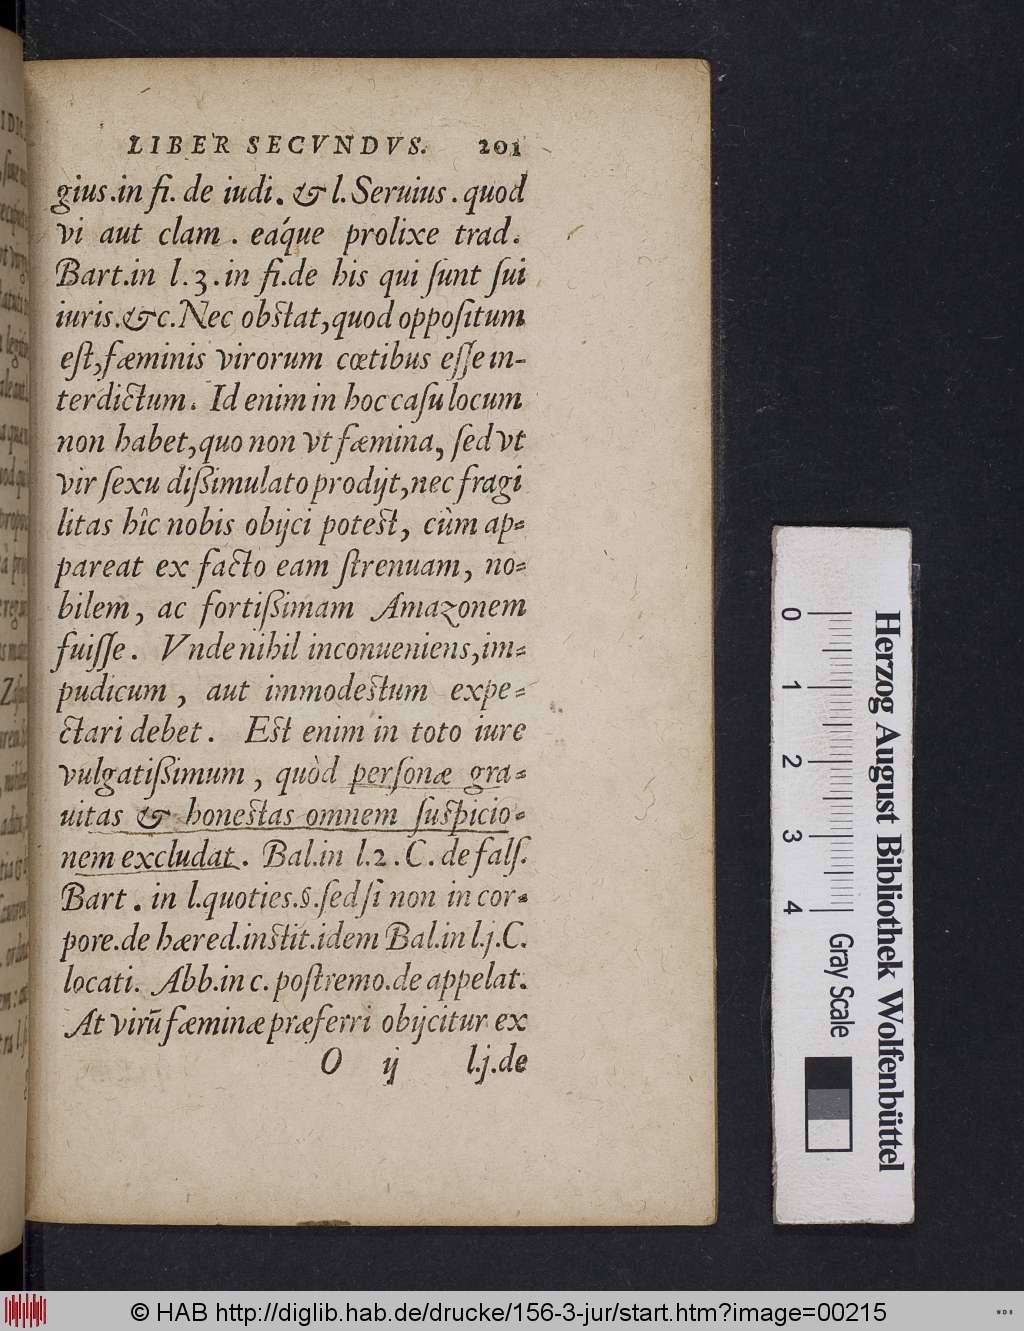 LIBER SECVNDVS. 201
gius.in fi. de iudi. & l. Seruius. quod
vi aut clam. eáque prolixe trad.
Bart.in l.3.in fi.de his qui ſunt ſui
iuris.&c.Nec obstat,quod oppoſitum
eſt,fæminis virorum cœtibus eſſe in-
terdictum. Id enim in hoc caſu locum
non habet,quo non vt fæmina, ſed vt
vir ſexu dißimulato prodijt,nec fragi
litas hîc nobis obijci potest, cùm ap-
pareat ex facto eam ſtrenuam, no-
bilem, ac fortißimam Amazonem
fuiſſe. Vnde nihil inconueniens,im-
pudicum, aut immodestum expe-
ctari debet. Est enim in toto iure
vulgatißimum, quòd perſonæ gra-
uitas & honestas omnem ſuſpicio-
nem excludat. Bal.in l.2. C. de falſ.
Bart. in l.quoties.§.ſed ſi non in cor-
pore.de hæred.instit.idem Bal.in l.j.C.
locati. Abb.in c. poſtremo.de appelat.
At virũ fæminæ præferri obijcitur ex
O ij l.j.de
Herzog August Bibliothek Wolfenbüttel
0 1 2 3 4 Gray Scale
© HAB http://diglib.hab.de/drucke/156-3-jur/start.htm?image=00215